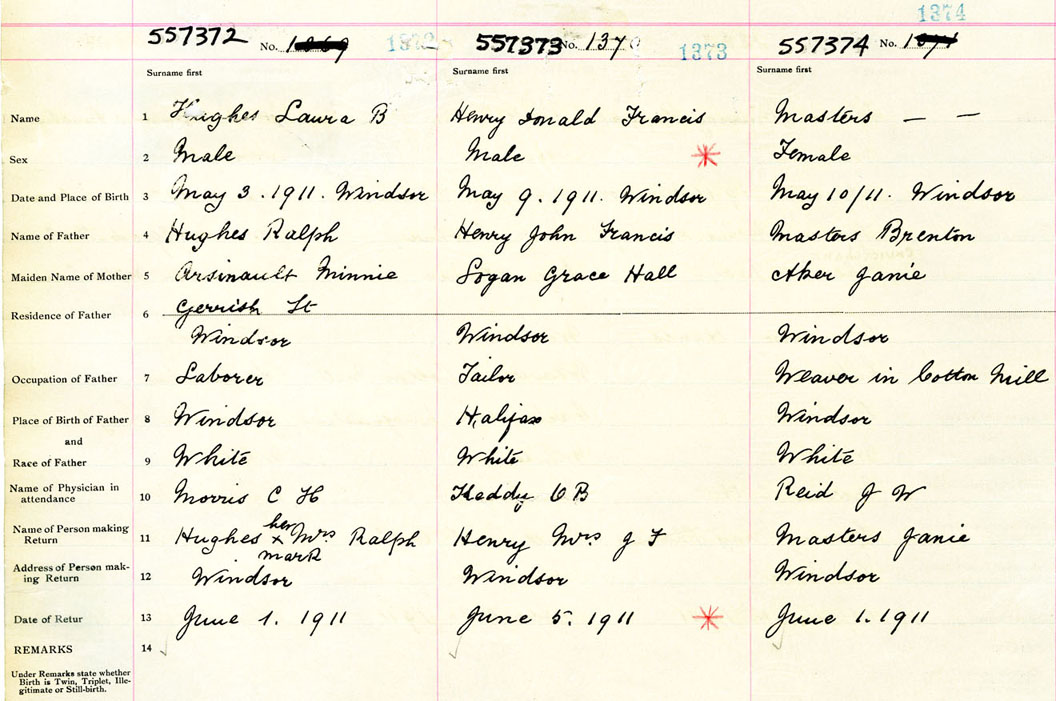 1374
557372 No. 1372 557373 No. 1370 1373 557374 No.
Surname first Surname first Surname first
Name 1 Hughes Laura B Henry Donald Francis Masters — —
Sex 2 Male Male Female
Date and Place of Birth 3 May 3. 1911. Windsor May 9. 1911. Windsor May 10/11. Windsor
Name of Father 4 Hughes Ralph Henry John Francis Masters Brenton
Maiden Name of Mother 5 Arsinault Minnie Logan Grace Hall Aker Janie
Gerrish St
Residence of Father 6
Windsor Windsor Windsor
Occupation of Father 7 Laborer Tailor Weaver in Cotton Mill
Place of Birth of Father 8 Windsor Halifax Windsor
and
Race of Father 9 White White White
Name of Physician in
attendance 10 Morris C H B Reid J W
her
Name of Person making
Return 11 Hughes x Mrs Ralph Henry Mrs J F Masters Janie
mark
Address of Person mak-
ing Return 12 Windsor Windsor Windsor
Date of Retur 13 June 1. 1911 June 5. 1911 June 1. 1911
REMARKS 14
Under Remarks state whether
Birth is Twin, Triplet, Ille-
gitimate or Still-birth.